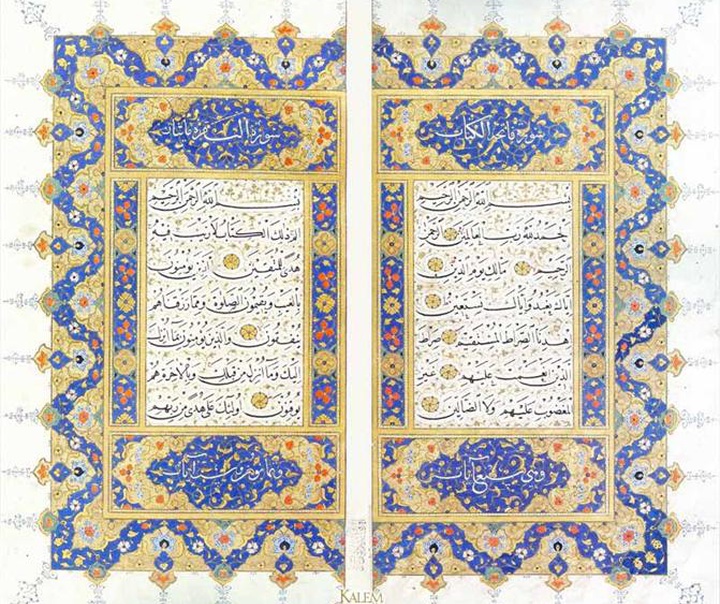 سورة فاتحة الكتاب
بسم الله الرحمن الرحيم
الحمد لله رب العالمين الرحمن
الرحيم مالك يوم الدين
اياك نعبد واياك نستعين
اهدنا الصراط المستقيم صراط
الذين انعمت عليهم غير
المغضوب عليهم ولا الضالين
وهي سبع آيات
سورة البقرة مائتان
بسم الله الرحمن الرحيم
الم ذلك الكتاب لا ريب فيه
هدى للمتقين الذين يؤمنون
بالغيب ويقيمون الصلوة ومما رزقناهم
ينفقون والذين يؤمنون بما انزل
اليك وما انزل من قبلك وبالآخرة هم
يوقنون اولئك على هدى من ربهم
وثمانون وست آيات
KALEM